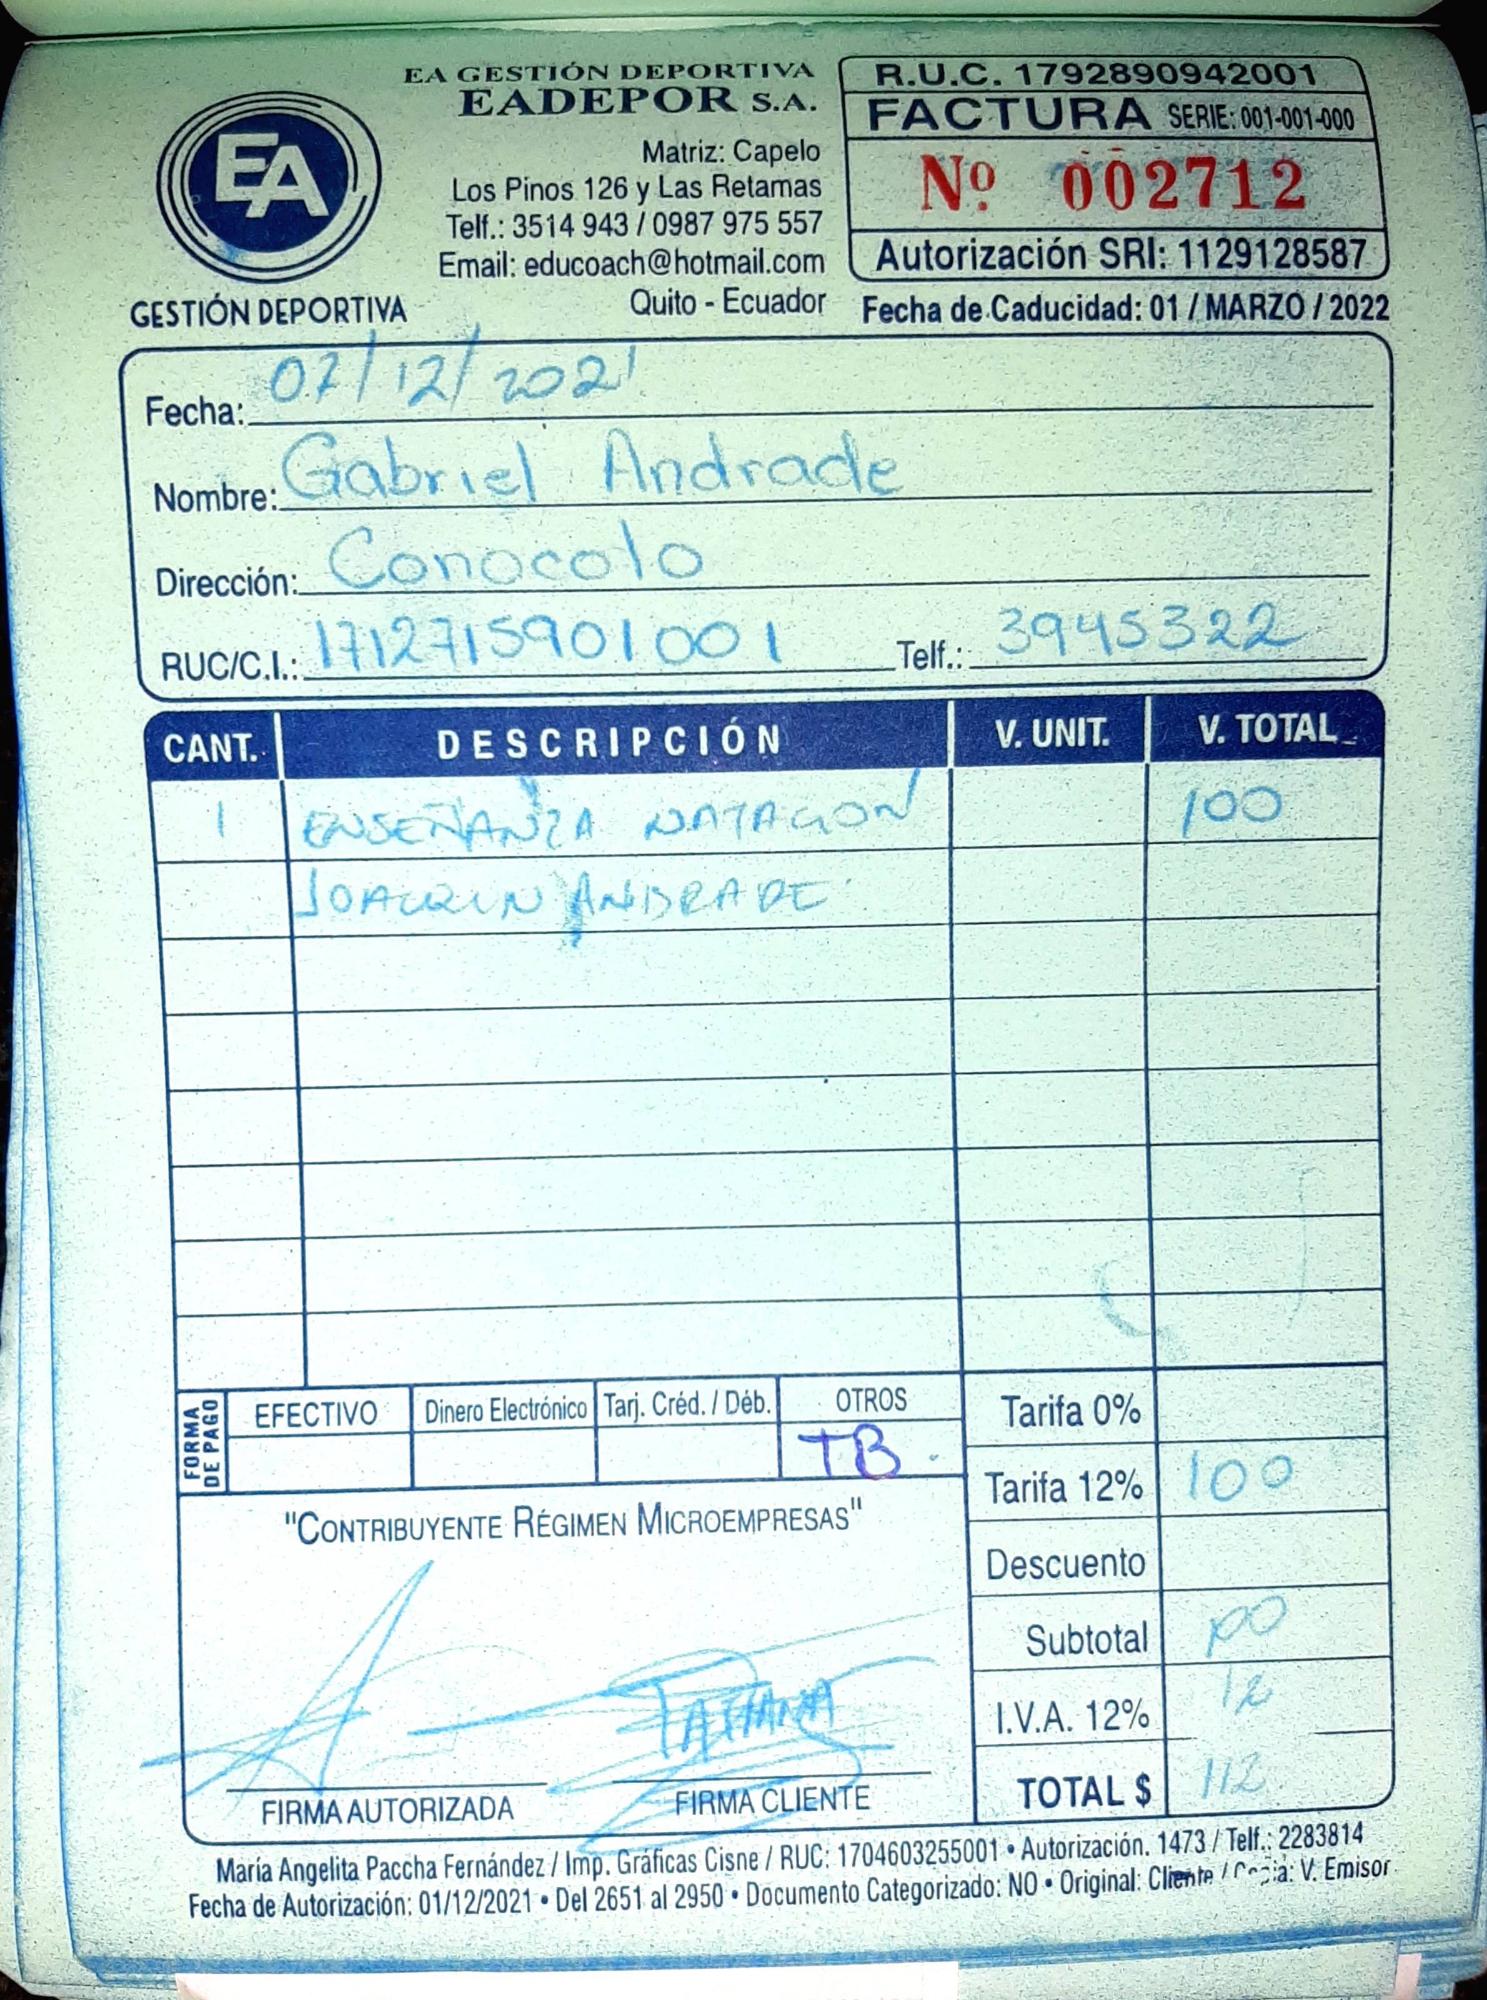 EA GESTIÓN DEPORTIVA
EADEPOR S.A.
EA
GESTIÓN DEPORTIVA
Matriz: Capelo
Los Pinos 126 y Las Retamas
Telf.: 3514 943 / 0987 975 557
Email: educoach@hotmail.com
Quito - Ecuador
R.U.C. 1792890942001
FACTURA SERIE: 001-001-000
Nº 002712
Autorización SRI: 1129128587
Fecha de Caducidad: 01 / MARZO / 2022
Fecha: 07/12/2021
Nombre: Gabriel Andrade
Dirección: Conocoto
RUC/C.I.: 1712715901001 Telf.: 3945322
CANT. DESCRIPCIÓN V. UNIT. V. TOTAL
1 ENSEÑANZA NATACION 100
JOAQUIN ANDRADE
FORMA DE PAGO
EFECTIVO Dinero Electrónico Tarj. Créd. / Déb. OTROS
TB
Tarifa 0%
Tarifa 12% 100
Descuento
Subtotal 100
I.V.A. 12% 12
TOTAL $ 112
"CONTRIBUYENTE RÉGIMEN MICROEMPRESAS"
TATIANA
FIRMA AUTORIZADA FIRMA CLIENTE
María Angelita Paccha Fernández / Imp. Gráficas Cisne / RUC: 1704603255001 • Autorización. 1473 / Telf.: 2283814
Fecha de Autorización: 01/12/2021 • Del 2651 al 2950 • Documento Categorizado: NO • Original: Cliente / Copia: V. Emisor